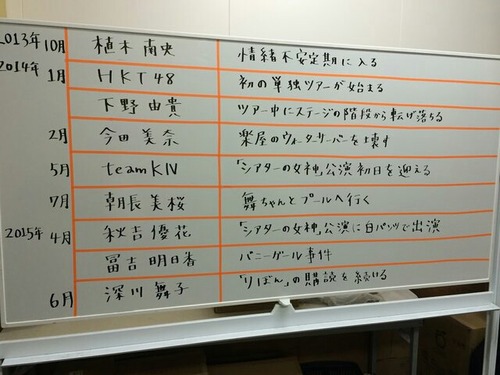 2013年10月 植木南央 情緒不安定期に入る
2014年1月 HKT48 初の単独ツアーが始まる
下野由貴 ツアー中にステージの階段から転げ落ちる
2月 今田美奈 楽屋のウォーターサーバーを壊す
5月 teamKIV 「シアターの女神」公演初日を迎える
7月 朝長美桜 舞ちゃんとプールへ行く
2015年4月 秋吉優花 「シアターの女神」公演に白パンツで出演
冨吉明日香 バニーガール事件
6月 深川舞子 「りぼん」の購読を続ける